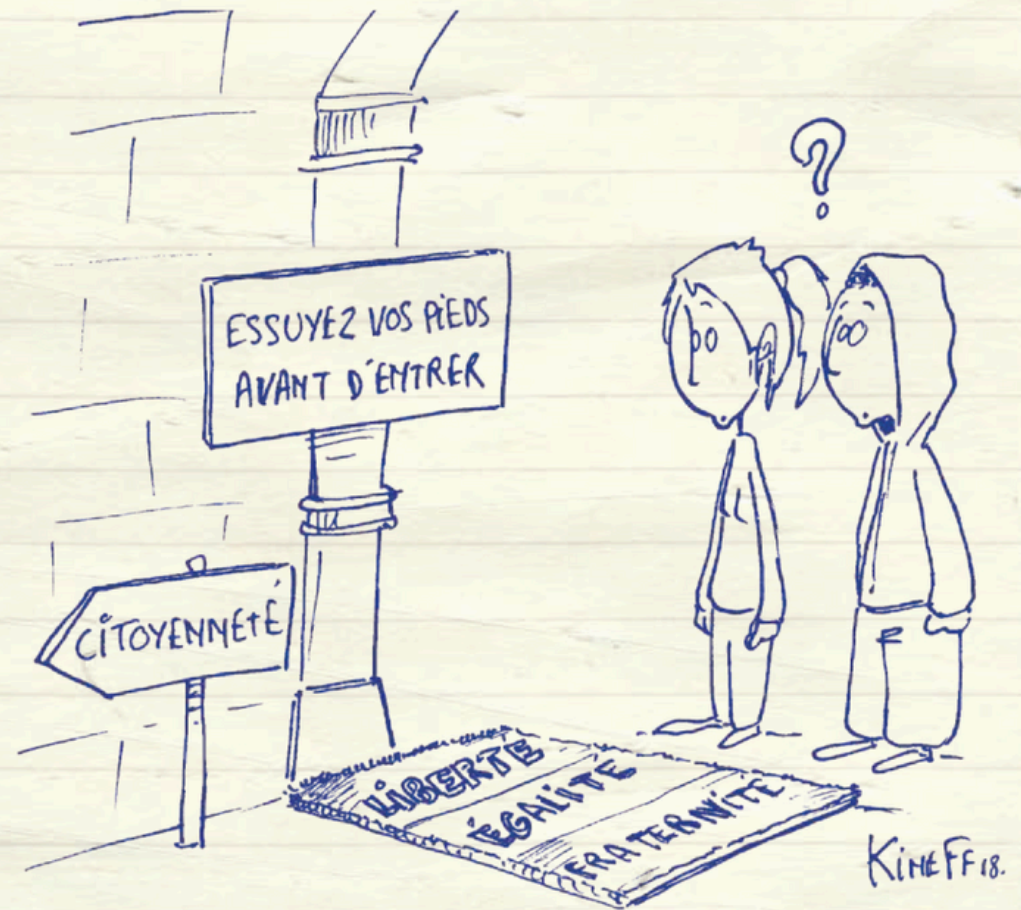 ?
ESSUYEZ VOS PIEDS
AVANT D'ENTRER
CITOYENNETÉ
LIBERTÉ
ÉGALITÉ
FRATERNITÉ
KIMEFF 18.